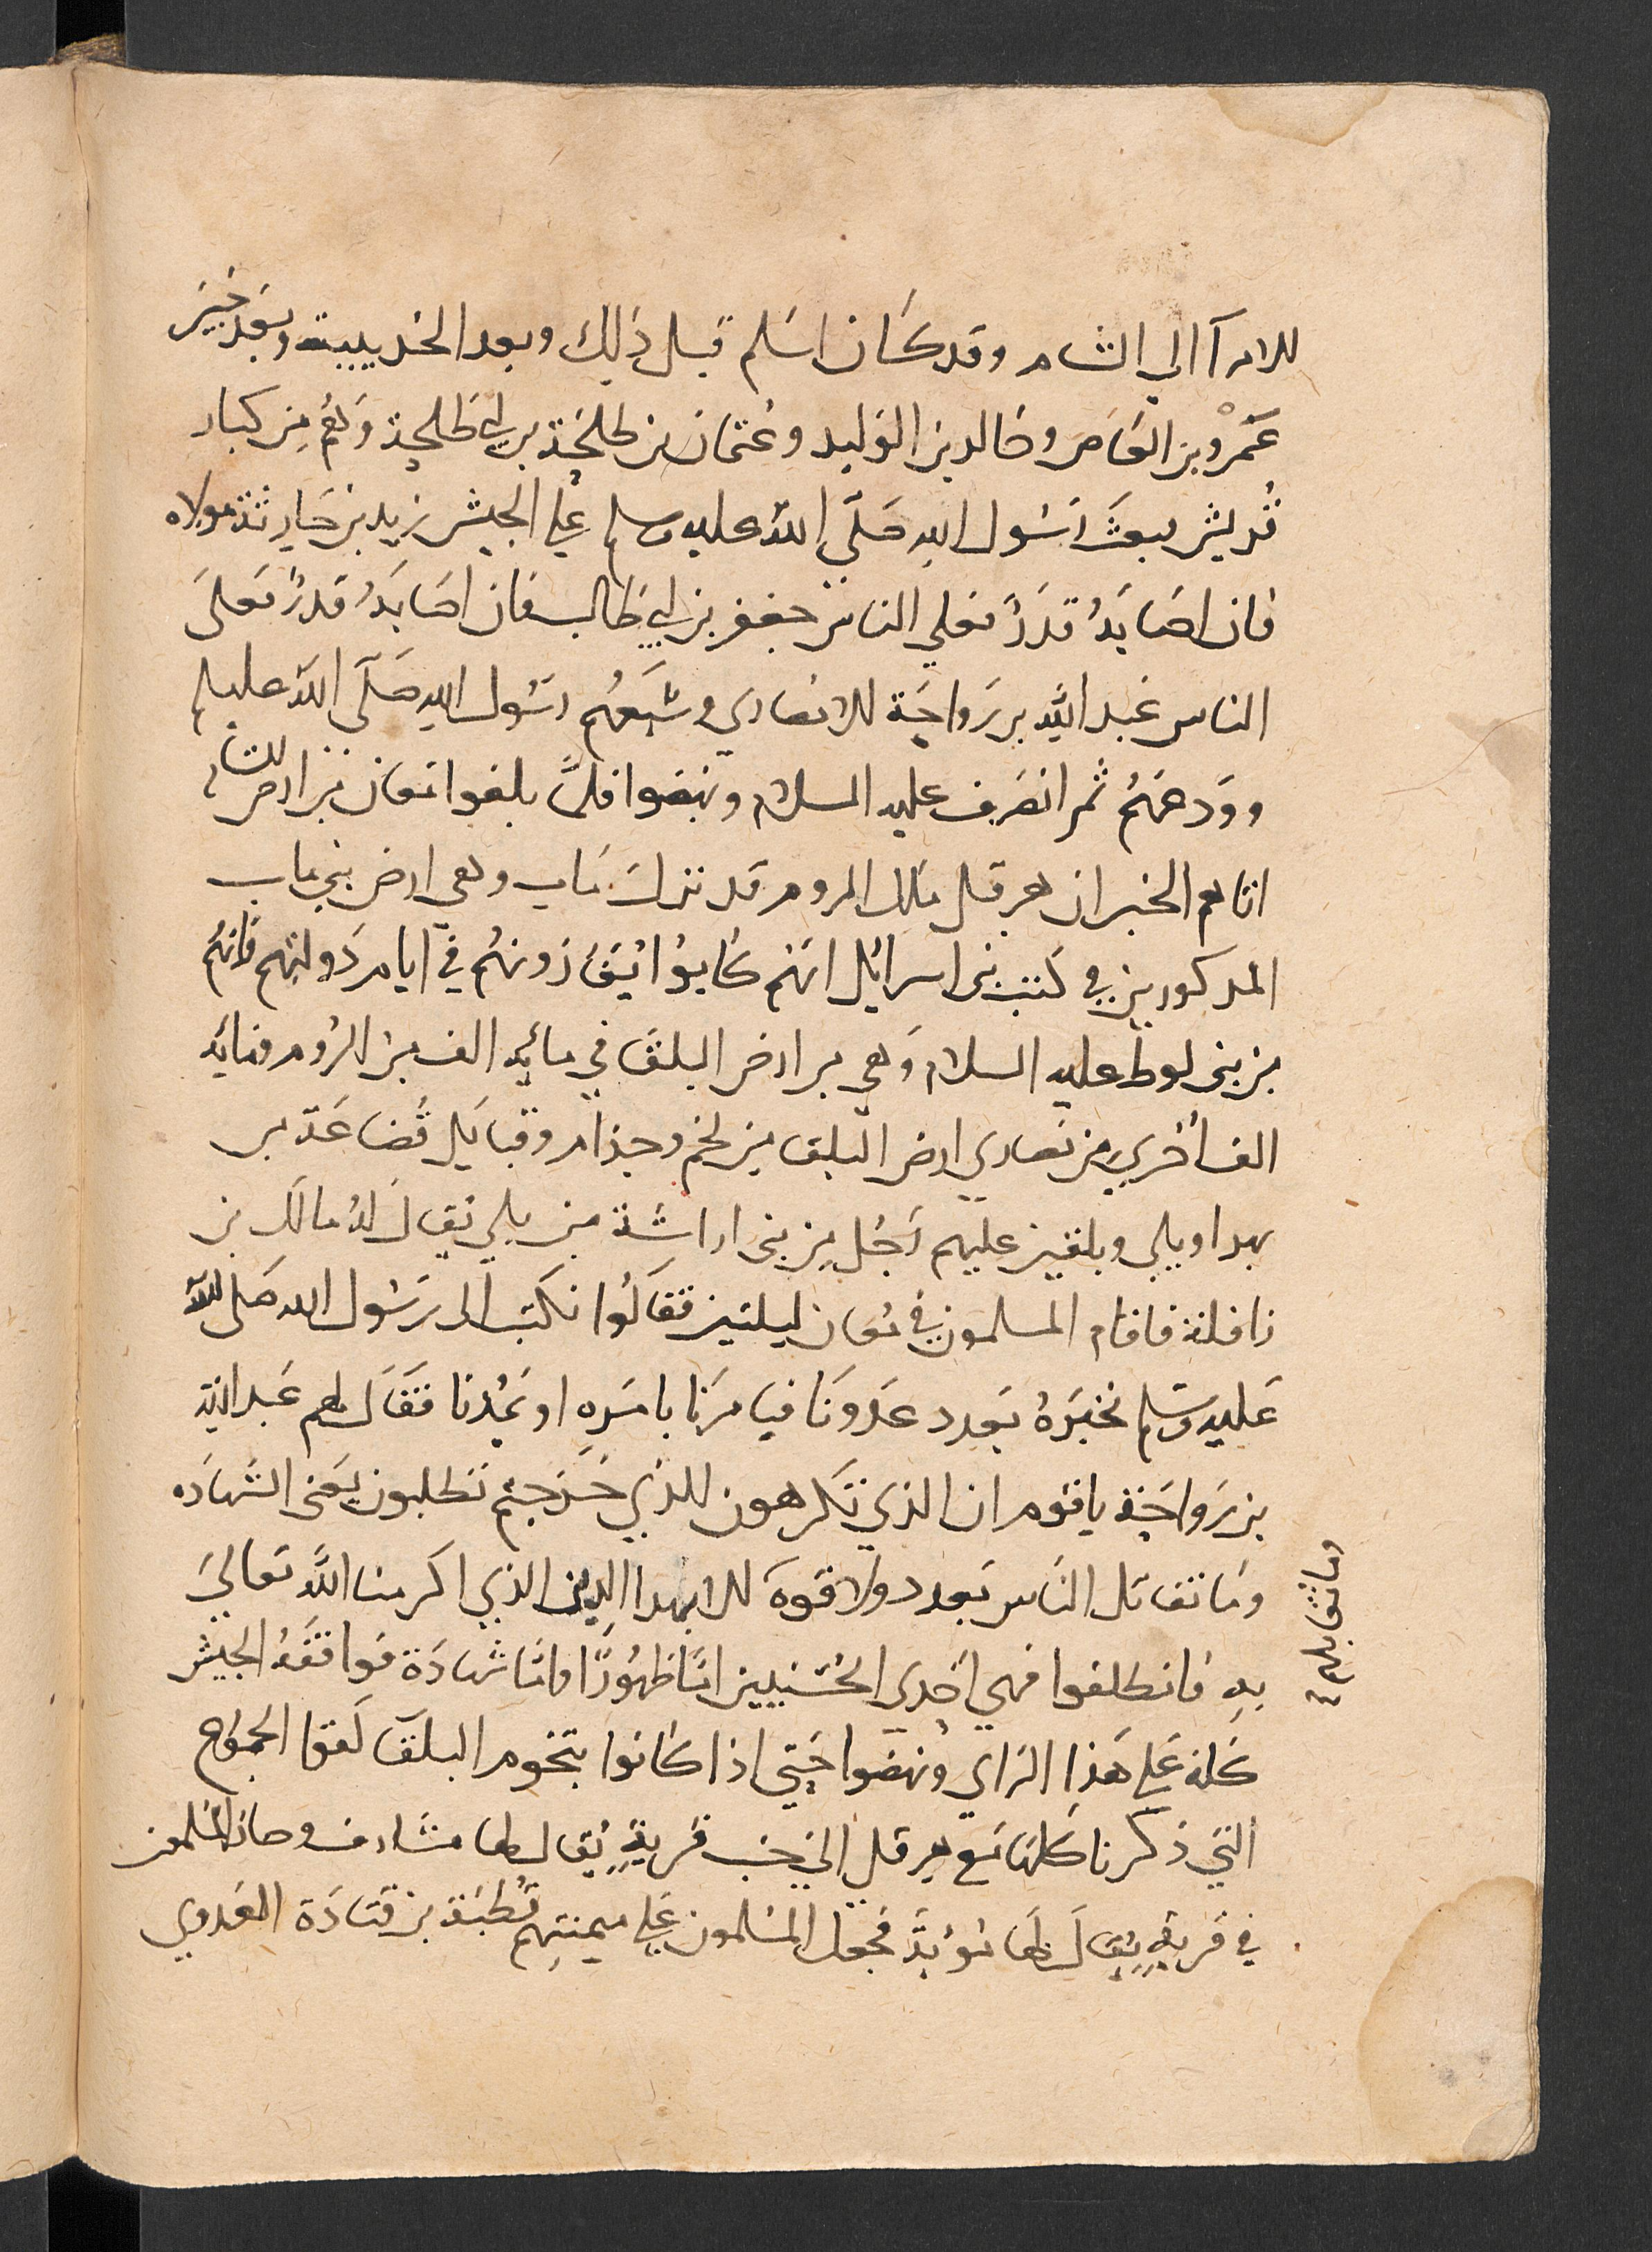 الامرآ الي الشام وقد كان اسلم قبل ذلك وبعد الحديبية وبعد خيبر
عَمْرو بن العاص وخالد بن الوليد وعثمان بن طلحة بن ابي طلحة وهم من كبار
قُريش فبعث رسول الله صَلَّى الله عليه وسلم علي الجيش زيد بن حارثة مولاه
فان اصَابهُ قدَرٌ فعلي الناس جعفر بن ابي طالب فان اصابهُ قدرٌ فعلَى
الناس عبد الله بن رَواحَة الانصاري وشيعهُم رسُول الله صَلَّى الله عليه وسلم
وودعهُم ثم انصَرف عليه السلام ونهضوا فلمَّا بلغوا معان من ارض الشام
اتاهم الخبر ان هرقل ملك الروم قد نزل مَاب وهي ارض بني ماب
المدكورين في كتب بنى اسرائل انهم كانوا يُغازونهُم في ايام دَولتهم فانهُم
من بنى لوط عليه السلام وَهي من ارض البلقَا في مائة الف من الرُوم ومائة
الف اخري من نصاري ارض البلقا من لخم وجذام وقبايل قُضاعَة من
بهرا وبلي وبلقين عليهم رَجُل من بنى اراشَة من بلي يُقال لهُ مالك بن
زافلة فاقام المسلمون في مُعان ليلتين فقَالوا نكتب الى رسُول الله صَلى الله
عَليه وسَلم نخبرهُ بعَدد عدونَا فيامرَنا بامرَه او يَمُدنا فقَال لهم عَبد الله
بن رَواحَة يا قوم ان الذي تكرهون للذي خَرَجتم تطلبون يعَنى الشهَاده
وَما نقاتل الناس بعدد ولا قوهَ الا بهدا الدِين الذي اكرمنا اللهُ تعاليَ
وما نقاتلهم
بهِ فانطلقوا فهي احدي الحُسنيين امَّا ظهُورٌ واما شهادَة فوافقهُ الجيش
كلهُ عَلي هَذا الراي ونهضوا حَتي اذا كانوا بتخوم البلقَا لَقوا الجموُع
التي ذكرنا كلهَا مَع هِرقل الي جنب قرية يُقال لها مشارف وصار المُسلمون
في قرية يُقَال لهَا مُؤتة فجعل المسلمون علي ميمنتهِم قُطبَة بن قتادَة العَدوي